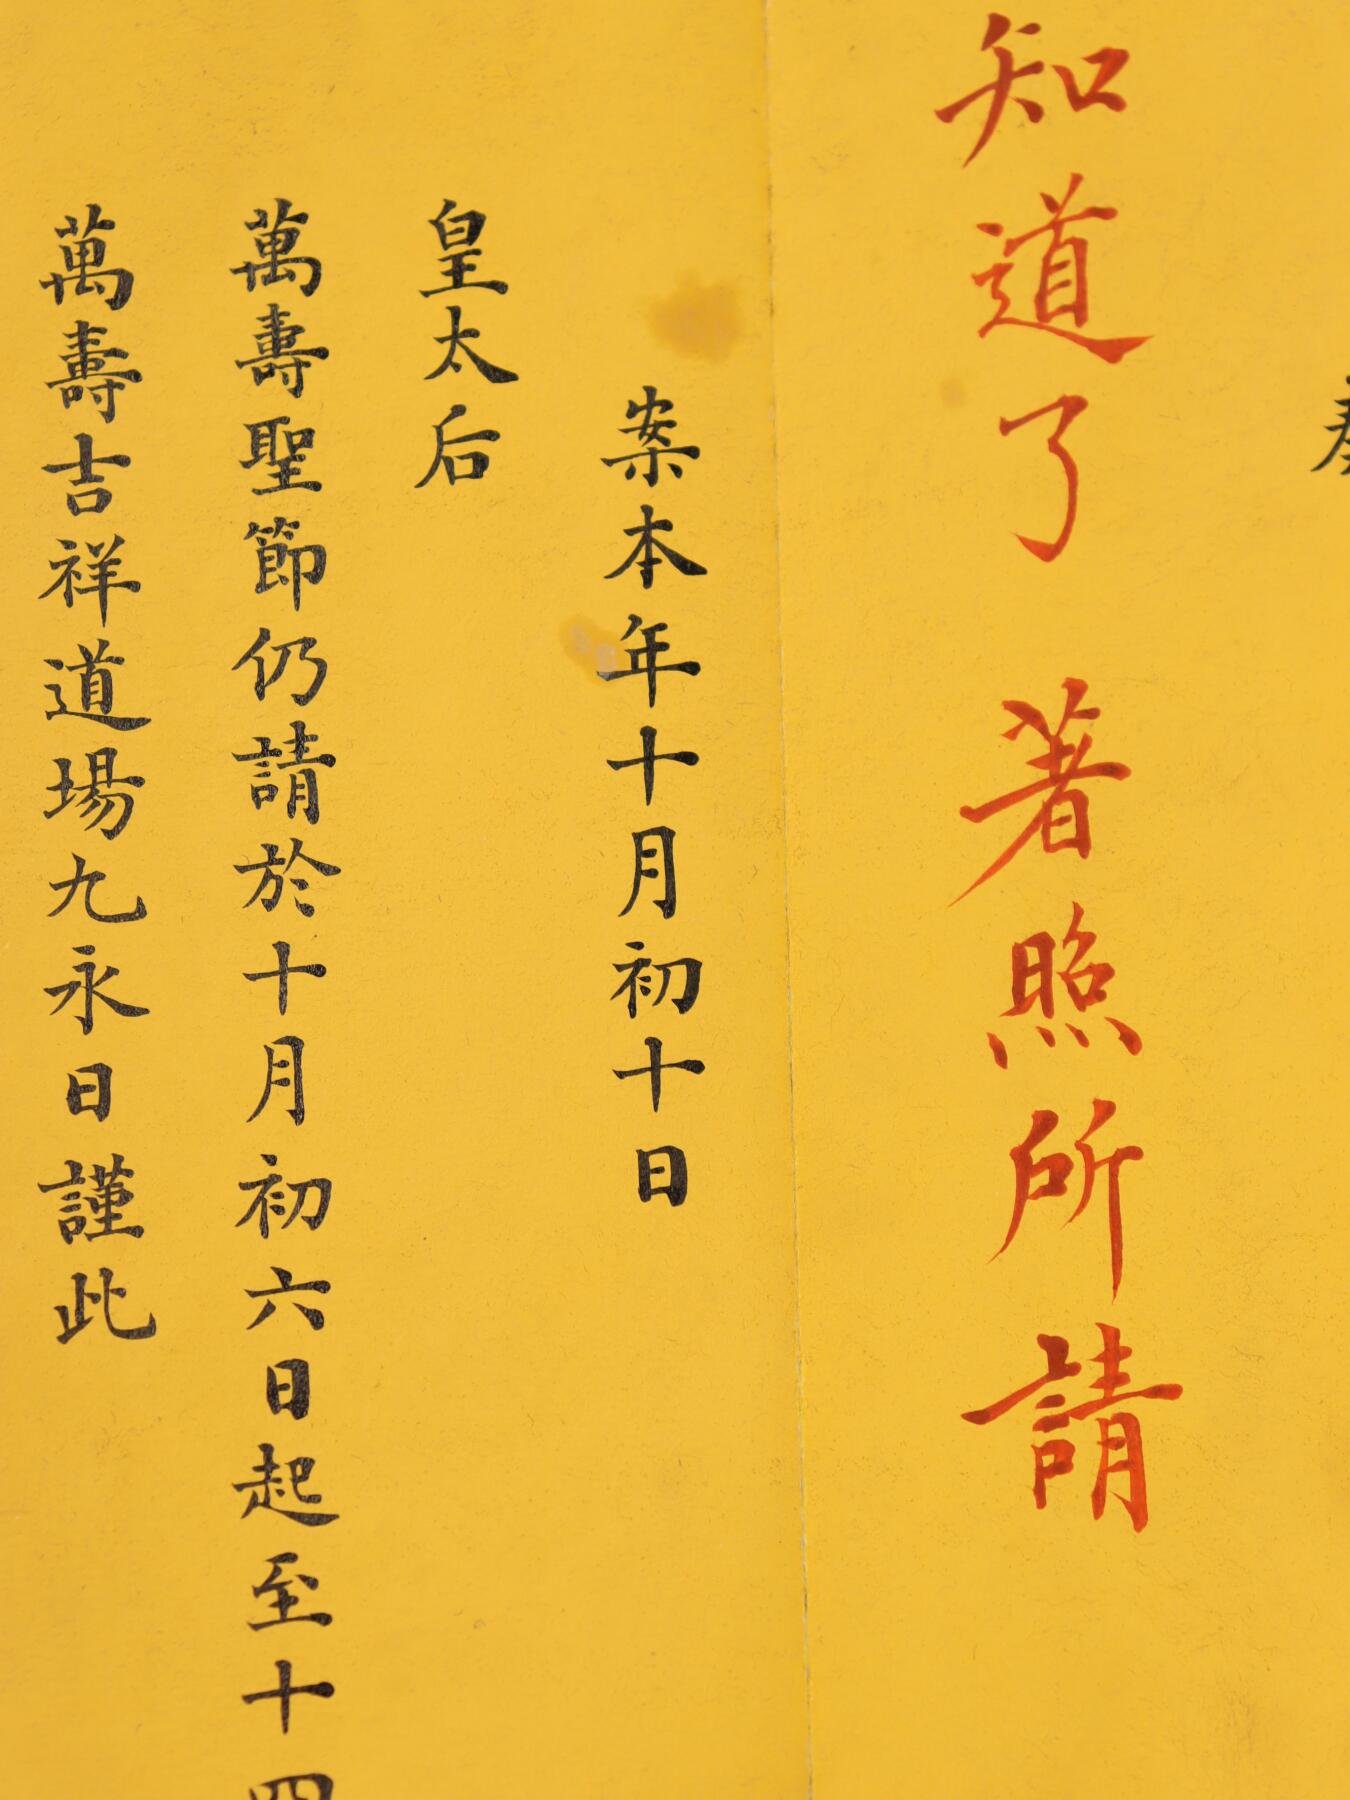 知道了 著照所請
案本年十月初十日
皇太后
萬壽聖節仍請於十月初六日起至十四
萬壽吉祥道場九永日謹此